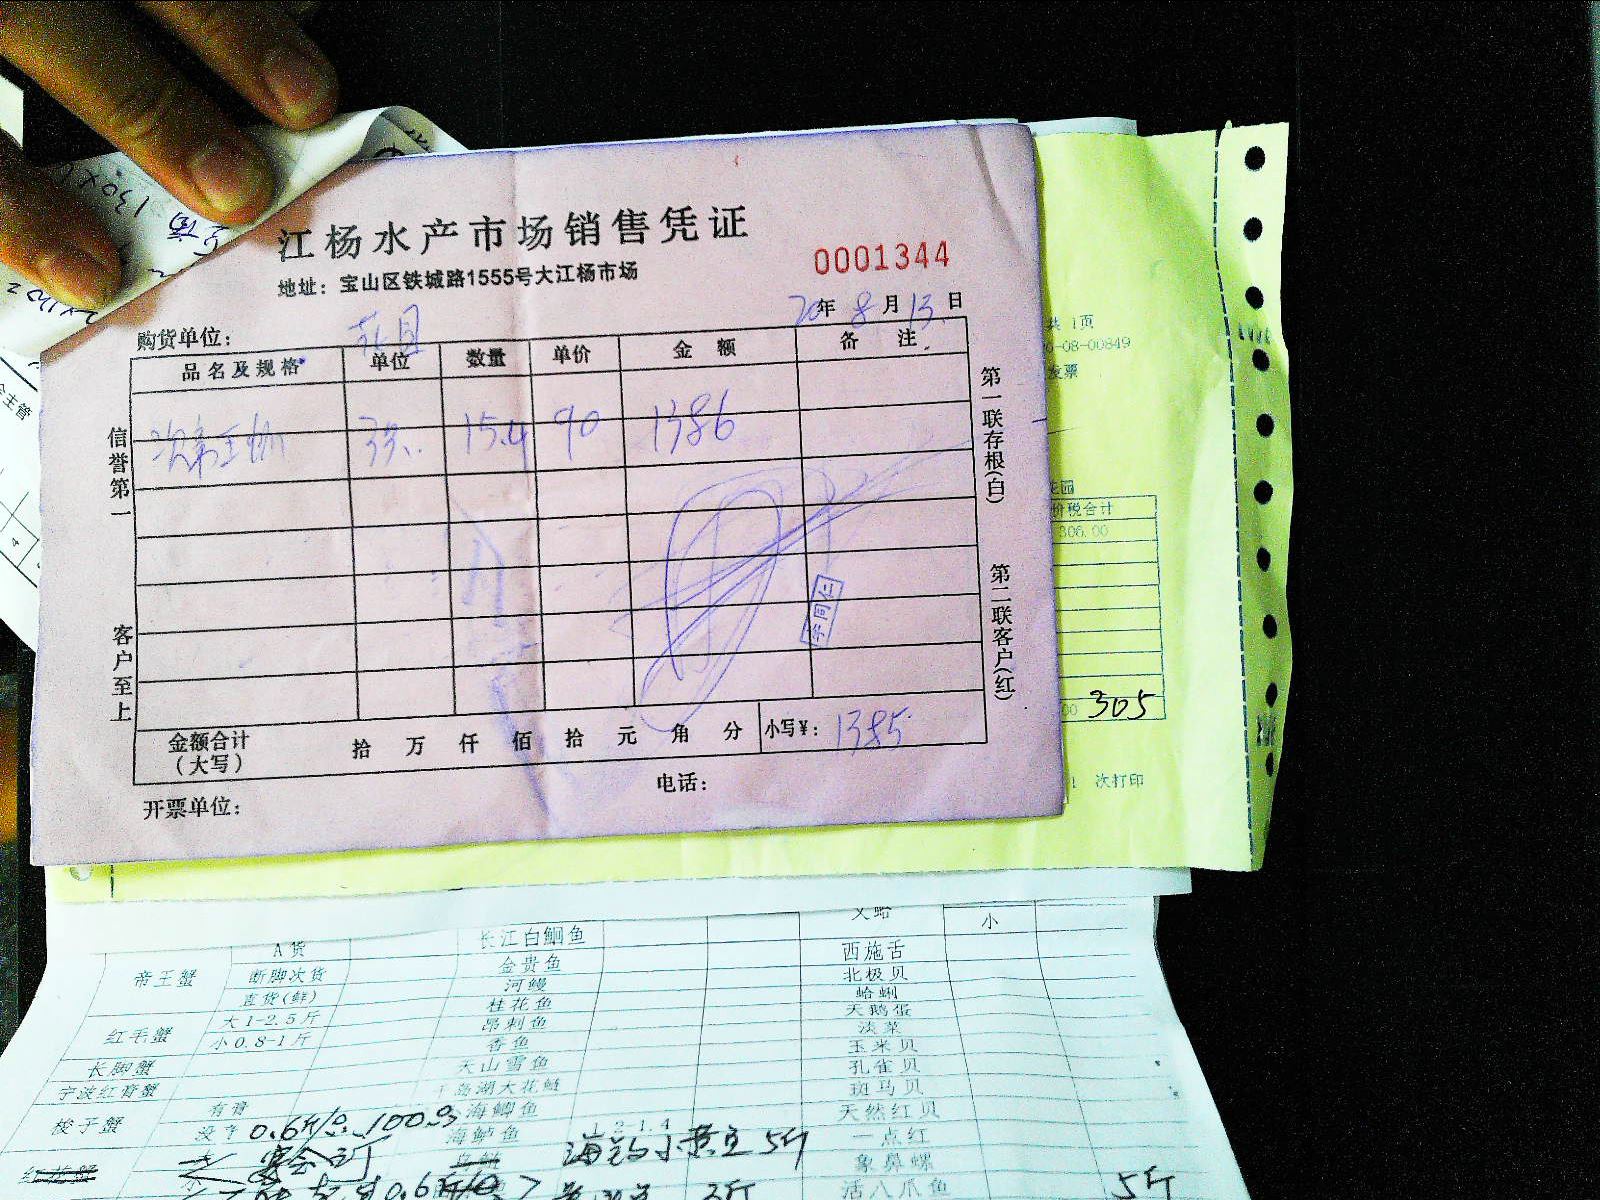 江杨水产市场销售凭证
0001344
地址：宝山区铁城路1555号大江杨市场
20年 8月 13日
购货单位：
品名及规格 单位 数量 单价 金额 备注
次帝王蟹 3只 15.4 90 1386
信誉第一
客户至上
第一联存根(白)
第二联客户(红)
金额合计(大写) 拾 万 仟 佰 拾 元 角 分 小写¥：1385
开票单位：
电话：
共 1页
-08-00849
发票
价税合计
306.00
305
次打印
主管
4
130
A货 长江白鮰鱼 小
帝王蟹 断脚次货 金贵鱼 西施舌
直货(鲜) 河鳗 北极贝
红毛蟹 大1-2.5斤 桂花鱼 蛤蜊
小0.8-1斤 昂刺鱼 天鹅蛋
香鱼 淡菜
长脚蟹 天山雪鱼 玉米贝
宁波红膏蟹 千岛湖大花鲢 孔雀贝
有膏 海鲫鱼 斑马贝
梭子蟹 海鲈鱼 1.2-1.4 天然红贝
0.6斤 100
一点红
5斤
象鼻螺
活八爪鱼 5斤